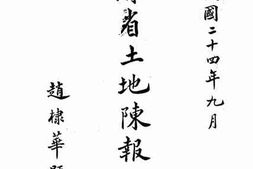 國二十四年九月
省土地陳報
趙棣華